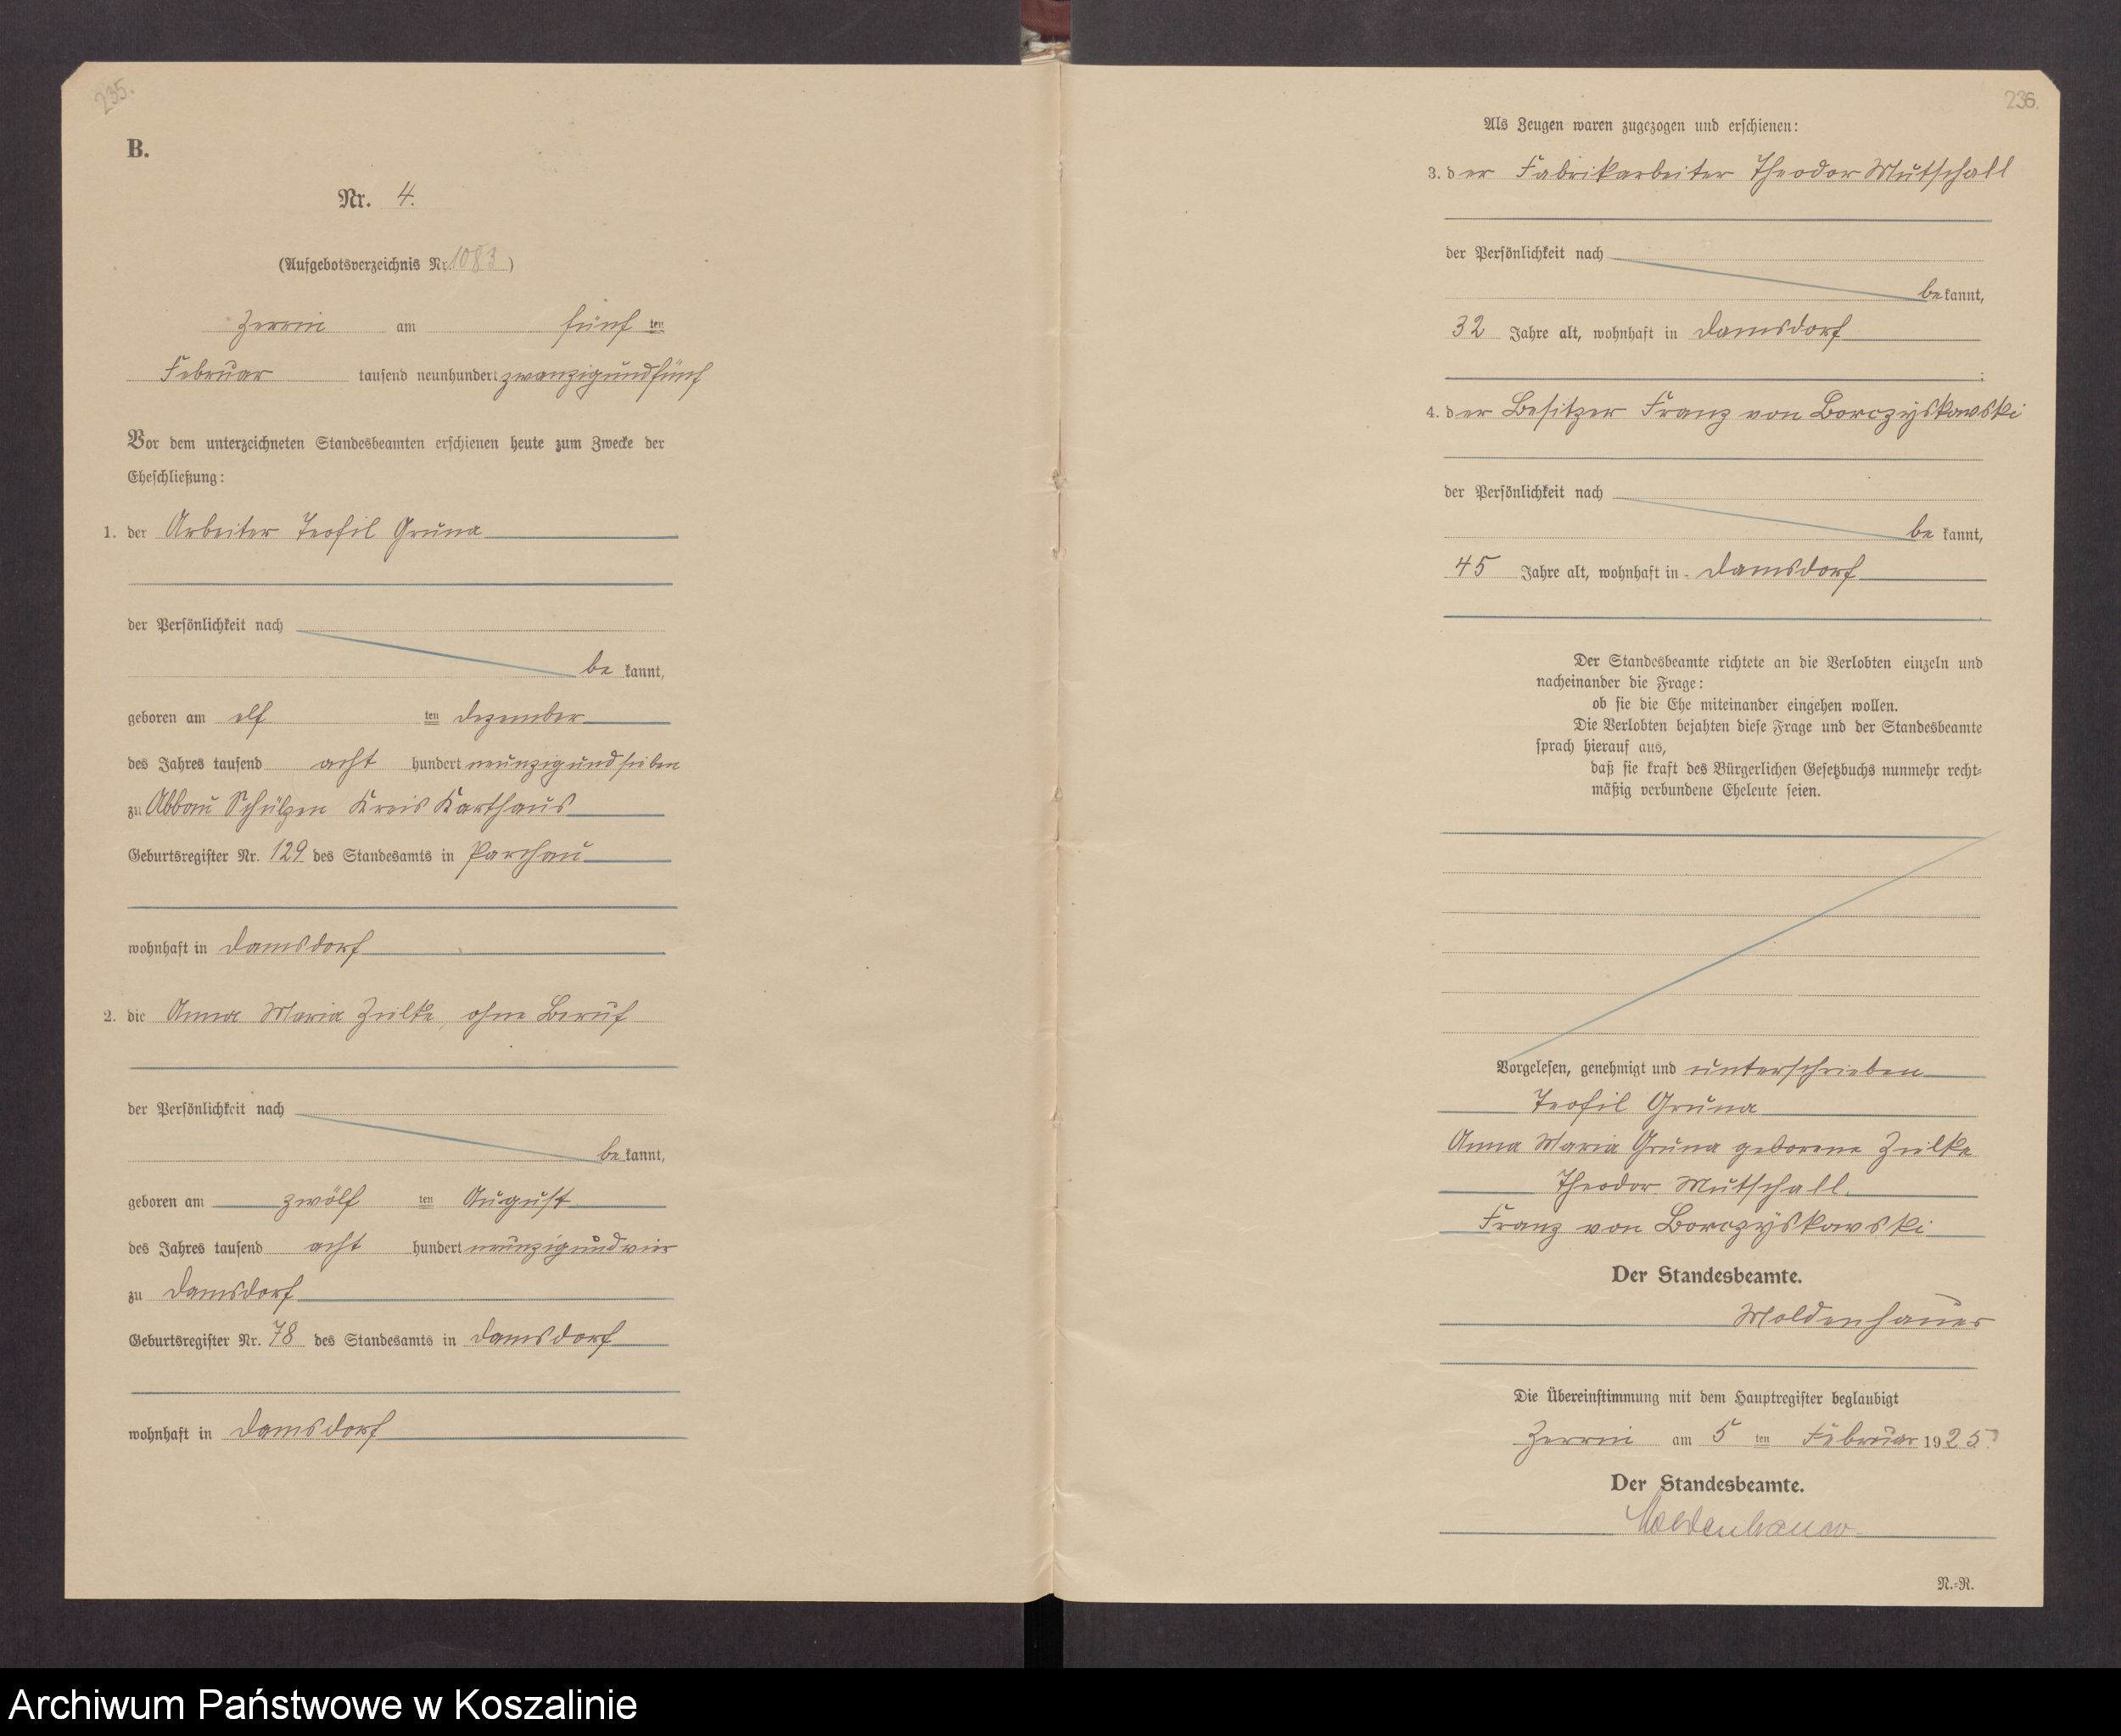 235.
B.
Nr. 4.
(Aufgebotsverzeichnis Nr. 1083)
Zerrin am fünf ten
Februar tausend neunhundert zwanzigundfünf
Vor dem unterzeichneten Standesbeamten erschienen heute zum Zwecke der
Eheschließung:
1. der Arbeiter Teofil Gruna
der Persönlichkeit nach
be kannt,
geboren am elf ten Dezember
des Jahres tausend acht hundert neunzigundsieben
zu Abbau Schülzen Kreis Karthaus
Geburtsregister Nr. 129 des Standesamts in Parchau
wohnhaft in Damsdorf
2. die Anna Maria Zielke, ohne Beruf
der Persönlichkeit nach
be kannt,
geboren am zwölf ten August
des Jahres tausend acht hundert neunzigundvier
zu Damsdorf
Geburtsregister Nr. 78 des Standesamts in Damsdorf
wohnhaft in Damsdorf
236.
Als Zeugen waren zugezogen und erschienen:
3. der Fabrikarbeiter Theodor Mutschall
der Persönlichkeit nach
be kannt,
32 Jahre alt, wohnhaft in Damsdorf
;
4. der Besitzer Franz von Borczyskowski
der Persönlichkeit nach
be kannt,
45 Jahre alt, wohnhaft in Damsdorf
Der Standesbeamte richtete an die Verlobten einzeln und
nacheinander die Frage:
ob sie die Ehe miteinander eingehen wollen.
Die Verlobten bejahten diese Frage und der Standesbeamte
sprach hierauf aus,
daß sie kraft des Bürgerlichen Gesetzbuchs nunmehr recht-
mäßig verbundene Eheleute seien.
Vorgelesen, genehmigt und unterschrieben
Teofil Gruna
Anna Maria Gruna geborene Zielke
Theodor Mutschall.
Franz von Borczyskowski
Der Standesbeamte.
Moldenhauer
Die Übereinstimmung mit dem Hauptregister beglaubigt
Zerrin am 5 ten Februar 1925
Der Standesbeamte.
Moldenhauer
N.-R.
Archiwum Państwowe w Koszalinie